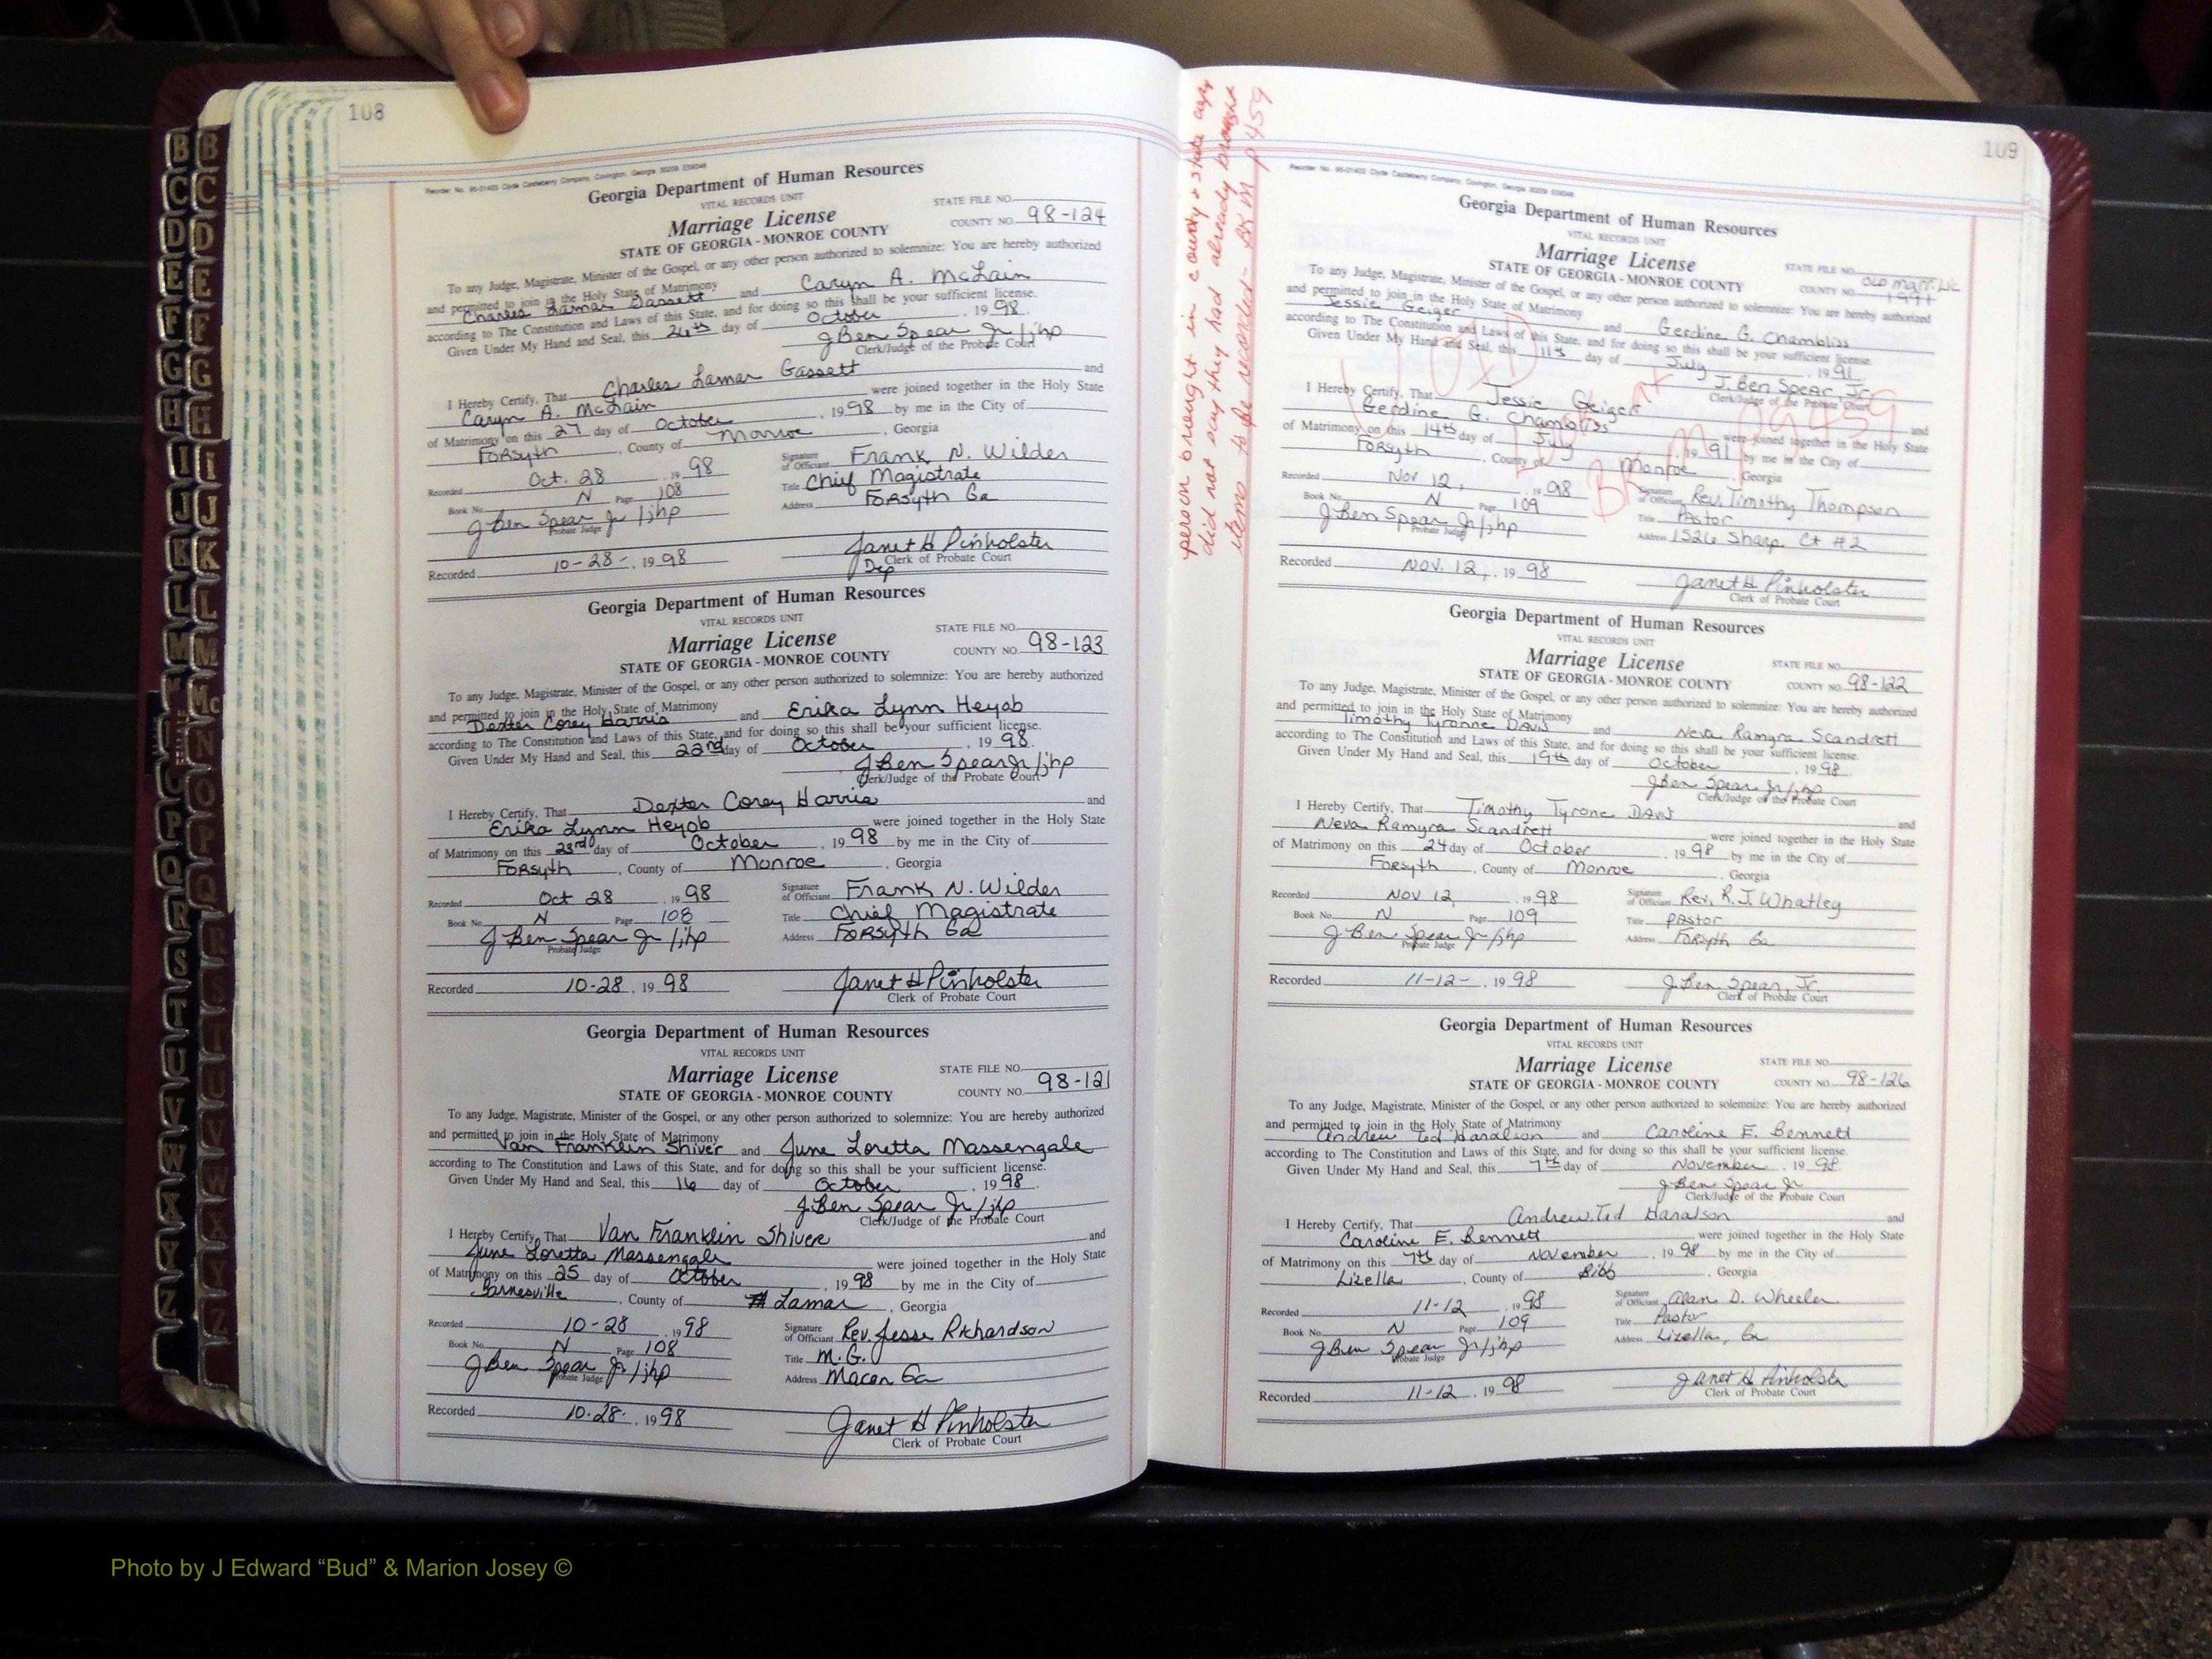 108
Recorder No. 95-01403 Clyde Castleberry Company, Covington, Georgia 30209
Georgia Department of Human Resources
VITAL RECORDS UNIT
Marriage License
STATE OF GEORGIA - MONROE COUNTY
STATE FILE NO.
COUNTY NO. 98-124
To any Judge, Magistrate, Minister of the Gospel, or any other person authorized to solemnize: You are hereby authorized
and permitted to join in the Holy State of Matrimony
Charles Lamar Gassett and Caryn A. McLain
according to The Constitution and Laws of this State, and for doing so this shall be your sufficient license.
Given Under My Hand and Seal, this 26th day of October, 1998.
J Ben Spear Jr/jhp
Clerk/Judge of the Probate Court
I Hereby Certify, That Charles Lamar Gassett and
Caryn A. McLain were joined together in the Holy State
of Matrimony on this 27 day of October, 1998 by me in the City of
Forsyth, County of Monroe, Georgia
Recorded Oct. 28 1998
Book No. N Page 108
J Ben Spear Jr/jhp
Probate Judge
Signature of Officiant Frank N. Wilder
Title Chief Magistrate
Address Forsyth Ga
Recorded 10-28-, 1998
Janet H Pinholster
Dep Clerk of Probate Court
Georgia Department of Human Resources
VITAL RECORDS UNIT
Marriage License
STATE OF GEORGIA - MONROE COUNTY
STATE FILE NO.
COUNTY NO. 98-123
To any Judge, Magistrate, Minister of the Gospel, or any other person authorized to solemnize: You are hereby authorized
and permitted to join in the Holy State of Matrimony
Dexter Corey Harris and Erika Lynn Heyob
according to The Constitution and Laws of this State, and for doing so this shall be your sufficient license.
Given Under My Hand and Seal, this 22nd day of October, 1998.
J Ben Spear Jr/jhp
Clerk/Judge of the Probate Court
I Hereby Certify, That Dexter Corey Harris and
Erika Lynn Heyob were joined together in the Holy State
of Matrimony on this 23rd day of October, 1998 by me in the City of
Forsyth, County of Monroe, Georgia
Recorded Oct 28 1998
Book No. N Page 108
J Ben Spear Jr/jhp
Probate Judge
Signature of Officiant Frank N. Wilder
Title Chief Magistrate
Address Forsyth Ga
Recorded 10-28, 1998
Janet H Pinholster
Clerk of Probate Court
Georgia Department of Human Resources
VITAL RECORDS UNIT
Marriage License
STATE OF GEORGIA - MONROE COUNTY
STATE FILE NO.
COUNTY NO. 98-121
To any Judge, Magistrate, Minister of the Gospel, or any other person authorized to solemnize: You are hereby authorized
and permitted to join in the Holy State of Matrimony
Van Franklin Shiver and June Loretta Massengale
according to The Constitution and Laws of this State, and for doing so this shall be your sufficient license.
Given Under My Hand and Seal, this 16 day of October, 1998.
J. Ben Spear Jr/jhp
Clerk/Judge of the Probate Court
I Hereby Certify, That Van Franklin Shiver and
June Loretta Massengale were joined together in the Holy State
of Matrimony on this 25 day of October, 1998 by me in the City of
Barnesville, County of Lamar, Georgia
Recorded 10-28 1998
Book No. N Page 108
J Ben Spear Jr/jhp
Probate Judge
Signature of Officiant Rev. Jesse Richardson
Title M.G.
Address Macon Ga
Recorded 10-28-, 1998
Janet H Pinholster
Clerk of Probate Court
109
person brought in county & state copy
did not say they had already brought
items to be recorded - BK M p 459
Recorder No. 95-01403 Clyde Castleberry Company, Covington, Georgia 30209
Georgia Department of Human Resources
VITAL RECORDS UNIT
Marriage License
STATE OF GEORGIA - MONROE COUNTY
STATE FILE NO.
COUNTY NO. Old Marr. Lic 1991
To any Judge, Magistrate, Minister of the Gospel, or any other person authorized to solemnize: You are hereby authorized
and permitted to join in the Holy State of Matrimony
Jessie Geiger and Gerdine G. Chambliss
according to The Constitution and Laws of this State, and for doing so this shall be your sufficient license.
Given Under My Hand and Seal, this 11th day of July, 1991
J. Ben Spear, Jr.
Clerk/Judge of the Probate Court
VOID
BK M Pg 459
I Hereby Certify, That Jessie Geiger and
Gerdine G. Chambliss were joined together in the Holy State
of Matrimony on this 14th day of July, 1991 by me in the City of
Forsyth, County of Monroe, Georgia
Recorded Nov 12, 1998
Book No. N Page 109
J Ben Spear Jr/jhp
Probate Judge
Signature of Officiant Rev. Timothy Thompson
Title Pastor
Address 1526 Sharp Ct #2
Recorded Nov. 12, 1998
Janet H Pinholster
Clerk of Probate Court
Georgia Department of Human Resources
VITAL RECORDS UNIT
Marriage License
STATE OF GEORGIA - MONROE COUNTY
STATE FILE NO.
COUNTY NO. 98-122
To any Judge, Magistrate, Minister of the Gospel, or any other person authorized to solemnize: You are hereby authorized
and permitted to join in the Holy State of Matrimony
Timothy Tyronne Davis and Neva Ramyra Scandrett
according to The Constitution and Laws of this State, and for doing so this shall be your sufficient license.
Given Under My Hand and Seal, this 19th day of October, 1998.
J Ben Spear Jr/jhp
Clerk/Judge of the Probate Court
I Hereby Certify, That Timothy Tyrone Davis and
Neva Ramyra Scandrett were joined together in the Holy State
of Matrimony on this 24 day of October, 1998 by me in the City of
Forsyth, County of Monroe, Georgia
Recorded Nov 12, 1998
Book No. N Page 109
J Ben Spear Jr/jhp
Probate Judge
Signature of Officiant Rev. R.J. Whatley
Title Pastor
Address Forsyth Ga
Recorded 11-12-, 1998
J. Ben Spear, Jr.
Clerk of Probate Court
Georgia Department of Human Resources
VITAL RECORDS UNIT
Marriage License
STATE OF GEORGIA - MONROE COUNTY
STATE FILE NO.
COUNTY NO. 98-126
To any Judge, Magistrate, Minister of the Gospel, or any other person authorized to solemnize: You are hereby authorized
and permitted to join in the Holy State of Matrimony
Andrew Ted Haralson and Caroline E. Bennett
according to The Constitution and Laws of this State, and for doing so this shall be your sufficient license.
Given Under My Hand and Seal, this 7th day of November, 1998
J Ben Spear Jr
Clerk/Judge of the Probate Court
I Hereby Certify, That Andrew Ted Haralson and
Caroline E. Bennett were joined together in the Holy State
of Matrimony on this 7th day of November, 1998 by me in the City of
Lizella, County of Bibb, Georgia
Recorded 11-12, 1998
Book No. N Page 109
J Ben Spear Jr/jhp
Probate Judge
Signature of Officiant Alan D. Wheeler
Title Pastor
Address Lizella, Ga
Recorded 11-12, 1998
Janet H Pinholster
Clerk of Probate Court
Photo by J Edward “Bud” & Marion Josey ©